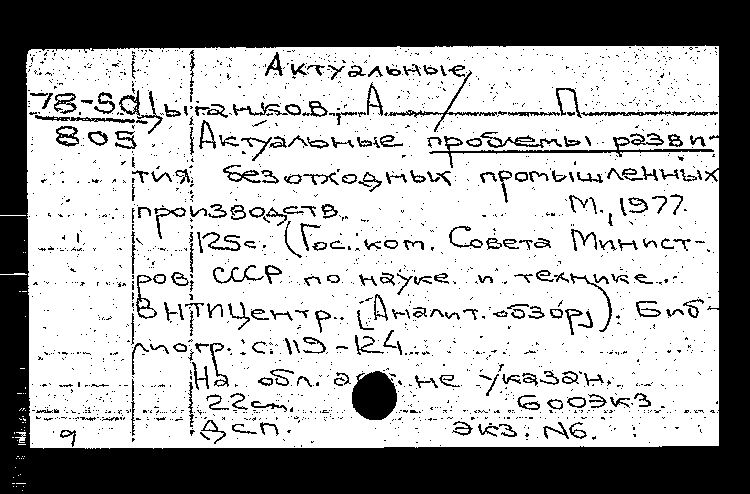 Актуальные
78-50 Цыганков, А П
805 Актуальные проблемы разви-
тия безотходных промышленных
производств. М., 1977.
125с. (Гос. ком. Совета Минист-
ров СССР по науке и технике.
ВНТИЦентр. [Аналит. обзор]). Биб-
лиогр.: с. 119-124.
На обл. авт. не указан.
22см. 600экз.
9 Дсп. экз. N6.